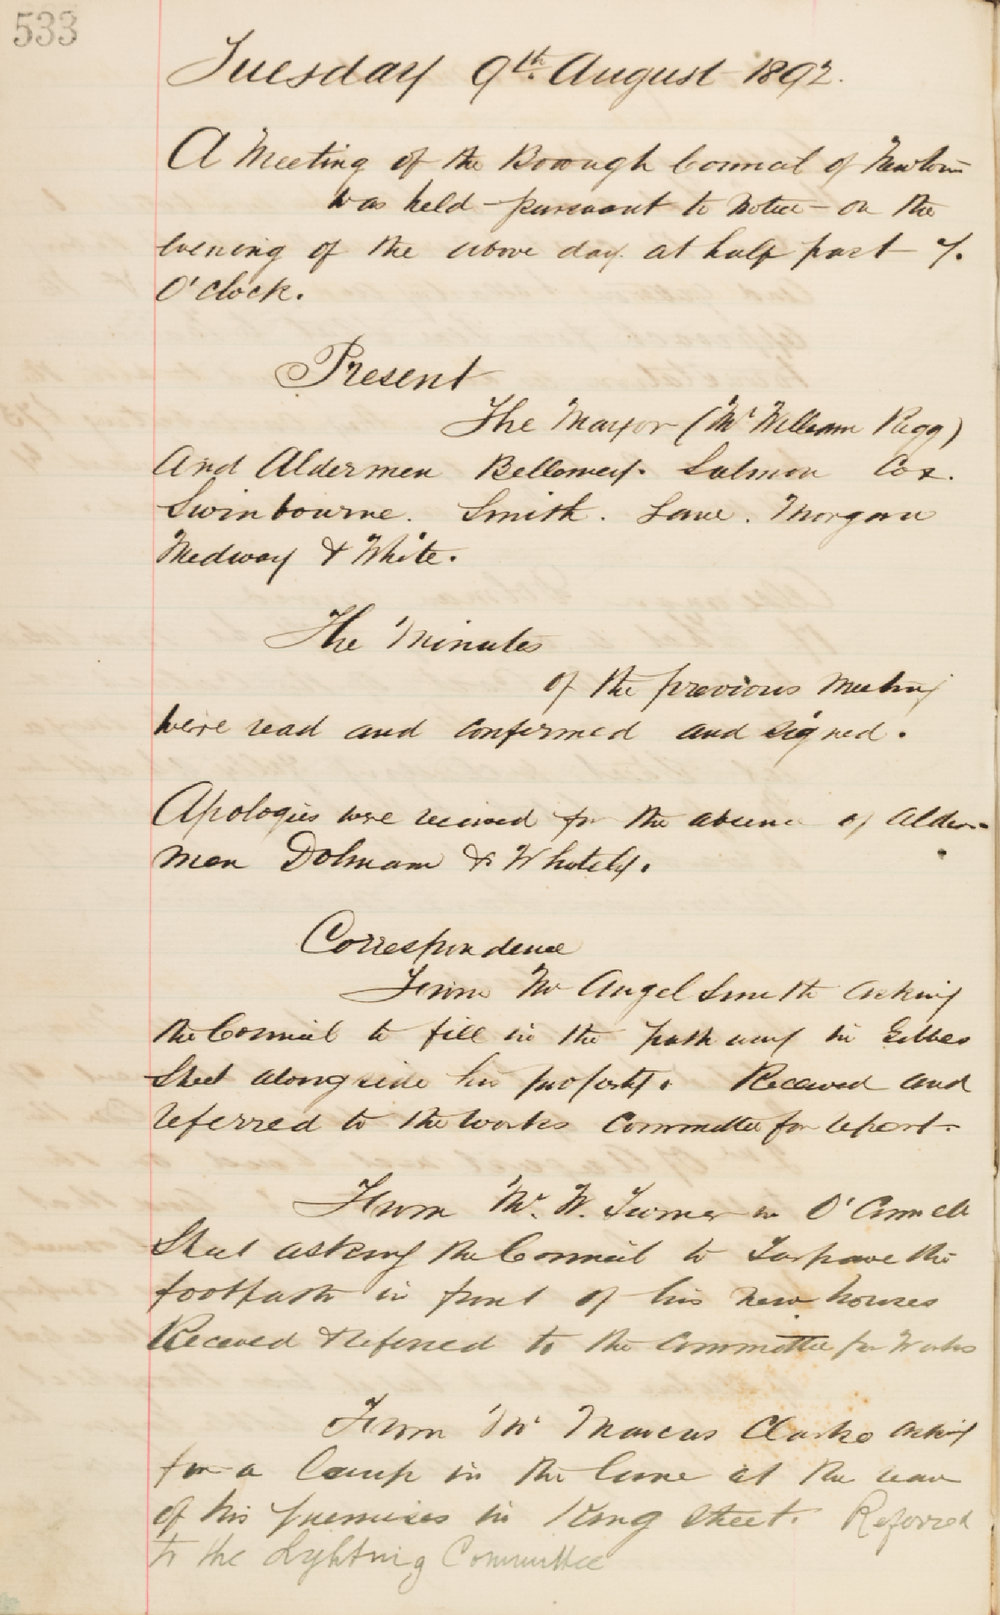 533
Tuesday 9th August 1892.
A Meeting of the Borough Council of Newtown
was held - pursuant to notice - on the
evening of the above day at half past 7.
O'Clock.
Present
The Mayor (Mr William Rigg)
And Aldermen Bellemey. Salmon Cox.
Swinbourne. Smith. Lane. Morgan
Medway & White.
The Minutes
of the previous Meeting
were read and confirmed and signed.
Apologies were received for the absence of Alder-
men Dolman & Whately.
Correspondence
From Mr Angel Smith asking
the Council to fill in the pathway in Gibbes
Street alongside his property. Received and
referred to the Works Committee for report.
From Mr. W. Turner in O'Connell
Street asking the Council to Tarpave the
footpath in front of his new houses
Received & Referred to the Committee for Works
From Mr Marcus Clarke asking
for a Lamp in the lane at the rear
of his premises in King Street. Referred
to the Lighting Committee